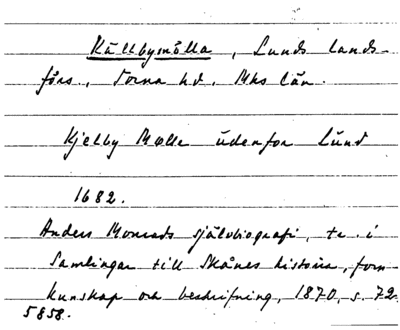 Källbymölla, Lunds lands-
förs., Torna hd, Mhs län.
Kjelby Mølle udenfor Lund
1682.
Anders Monrads självbiografi, tr. i
Samlingar till Skånes historia, forn
kunskap och beskrifning, 1870, s. 72.
5858.